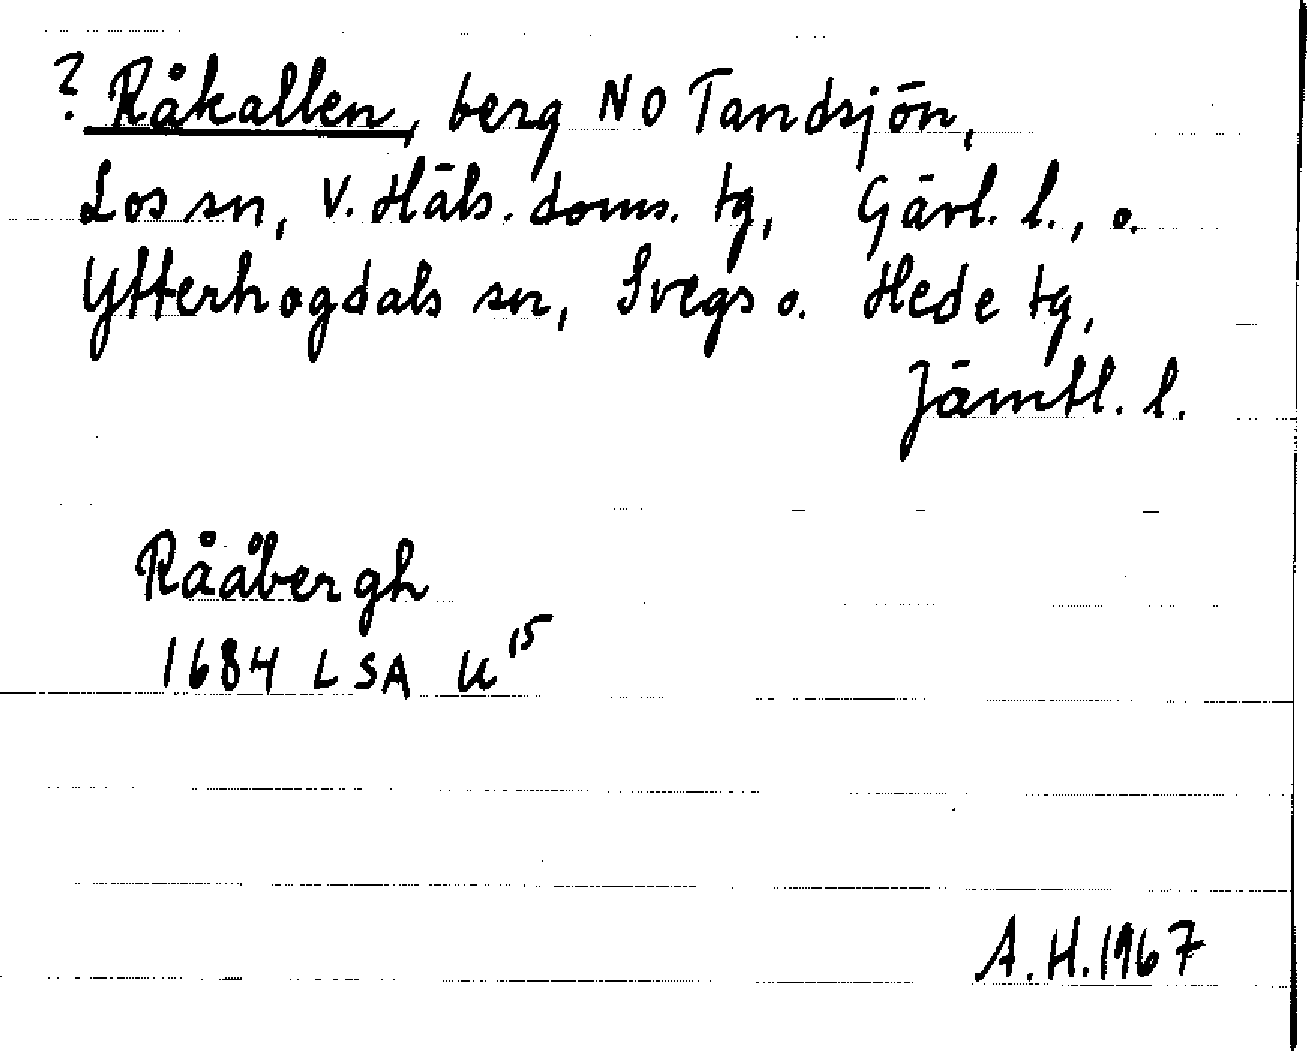 ? Råkallen, berg NO Tandsjön,
Los sn, V. Häls. doms. tg, Gävl. l., o.
Ytterhogdals sn, Svegs o. Hede tg,
Jämtl. l.
Rååbergh
1684 LSA U¹⁵
A.H. 1967